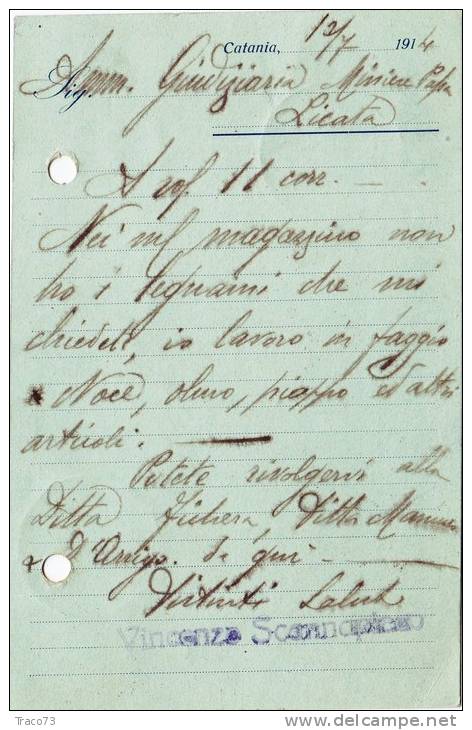 Catania, 12/7 1914
Sig. Amm. Giudiziaria Miniere
Licata
A vos/ 11 corr. —
Nei m/ magazzino non
ho i legnami che mi
chiedete, io lavoro in faggio
Noce, olmo, pioppo ed altri
articoli. —
Potete rivolgervi alla
Ditta Ditta
D'Arrigo. di qui —
Distinti Saluti
Vincenzo
Traco73
www.delcampe.net